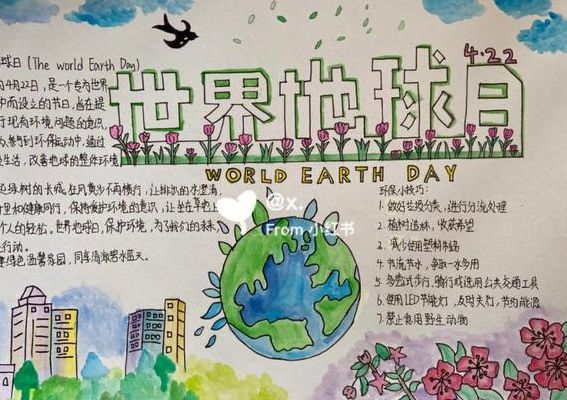 4.22
世界地球日
WORLD EARTH DAY
球日(The world Earth Day)
4月22日,是一个专为世界
而设立的节日,旨在提
现有环境问题的意识
参与到环保运动中,通过
生活,改善地球的整体环境
树的长成,狂风黄沙不再横行,让排出的水澄清,
里和健康同行,保持爱护环境的意识,让坐在草地上
个人的轻松。世界地球日,保护环境,为了我们的未来
行动。
绿色温馨家园,同享清澈碧水蓝天。
@x.
From 小红书
环保小技巧:
1. 做好垃圾分类,进行分流处理
2. 植树造林,收获希望
3. 减少使用塑料制品
4. 节流节水,争取一水多用
5. 多尝试步行,骑行或选用公共交通工具
6. 使用LED节能灯,及时关灯,节约能源
7. 禁止食用野生动物